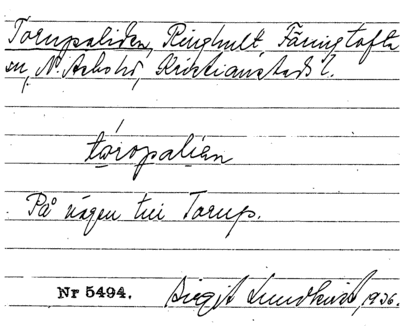 Torupaliden, Ringhult Färingtofta
sn, N. Åsbo hd, Kristianstads l.
tóropalien
På vägen till Torup.
Nr 5494. Birgit Lundkvist, 1936.